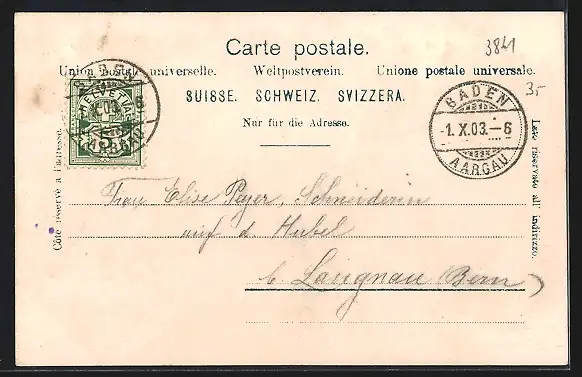 Carte postale.
3841
Union postale universelle. Weltpostverein. Unione postale universale.
SUISSE. SCHWEIZ. SVIZZERA.
35
Nur für die Adresse.
HELVETIA
5
AARGAU
BADEN
-1.X.03.-6
AARGAU
Côté réservé à l'adresse.
Lato riservato all' indirizzo.
Frau Elise Peyer, Schneiderin
auf d. Hubel
b. Langnau (Bern)